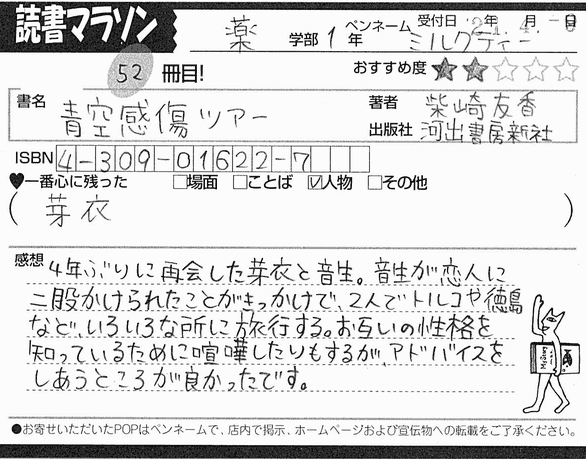 読書マラソン
薬 学部 1年 ペンネーム ミルクティー 受付日 2年 月 日
52 冊目!
おすすめ度 ★★☆☆☆
書名 青空感傷ツアー
著者 柴崎友香
出版社 河出書房新社
ISBN 4-309-01622-7
♥一番心に残った □場面 □ことば ☑人物 □その他
(芽衣)
感想 4年ぶりに再会した芽衣と音生。音生が恋人に
二股かけられたことがきっかけで、2人でトルコや徳島
など、いろいろな所に旅行する。お互いの性格を
知っているために喧嘩したりもするが、アドバイスを
しあうところが良かったです。
●お寄せいただいたPOPはペンネームで、店内で掲示、ホームページおよび宣伝物への転載をご了承ください。